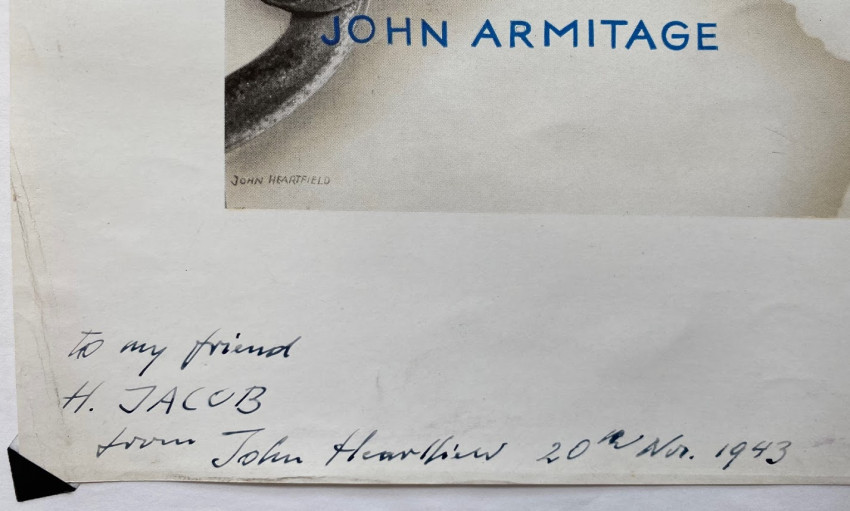 JOHN ARMITAGE
JOHN HEARTFIELD
to my friend
H. JACOB
from John Heartfield 20th Nov. 1943